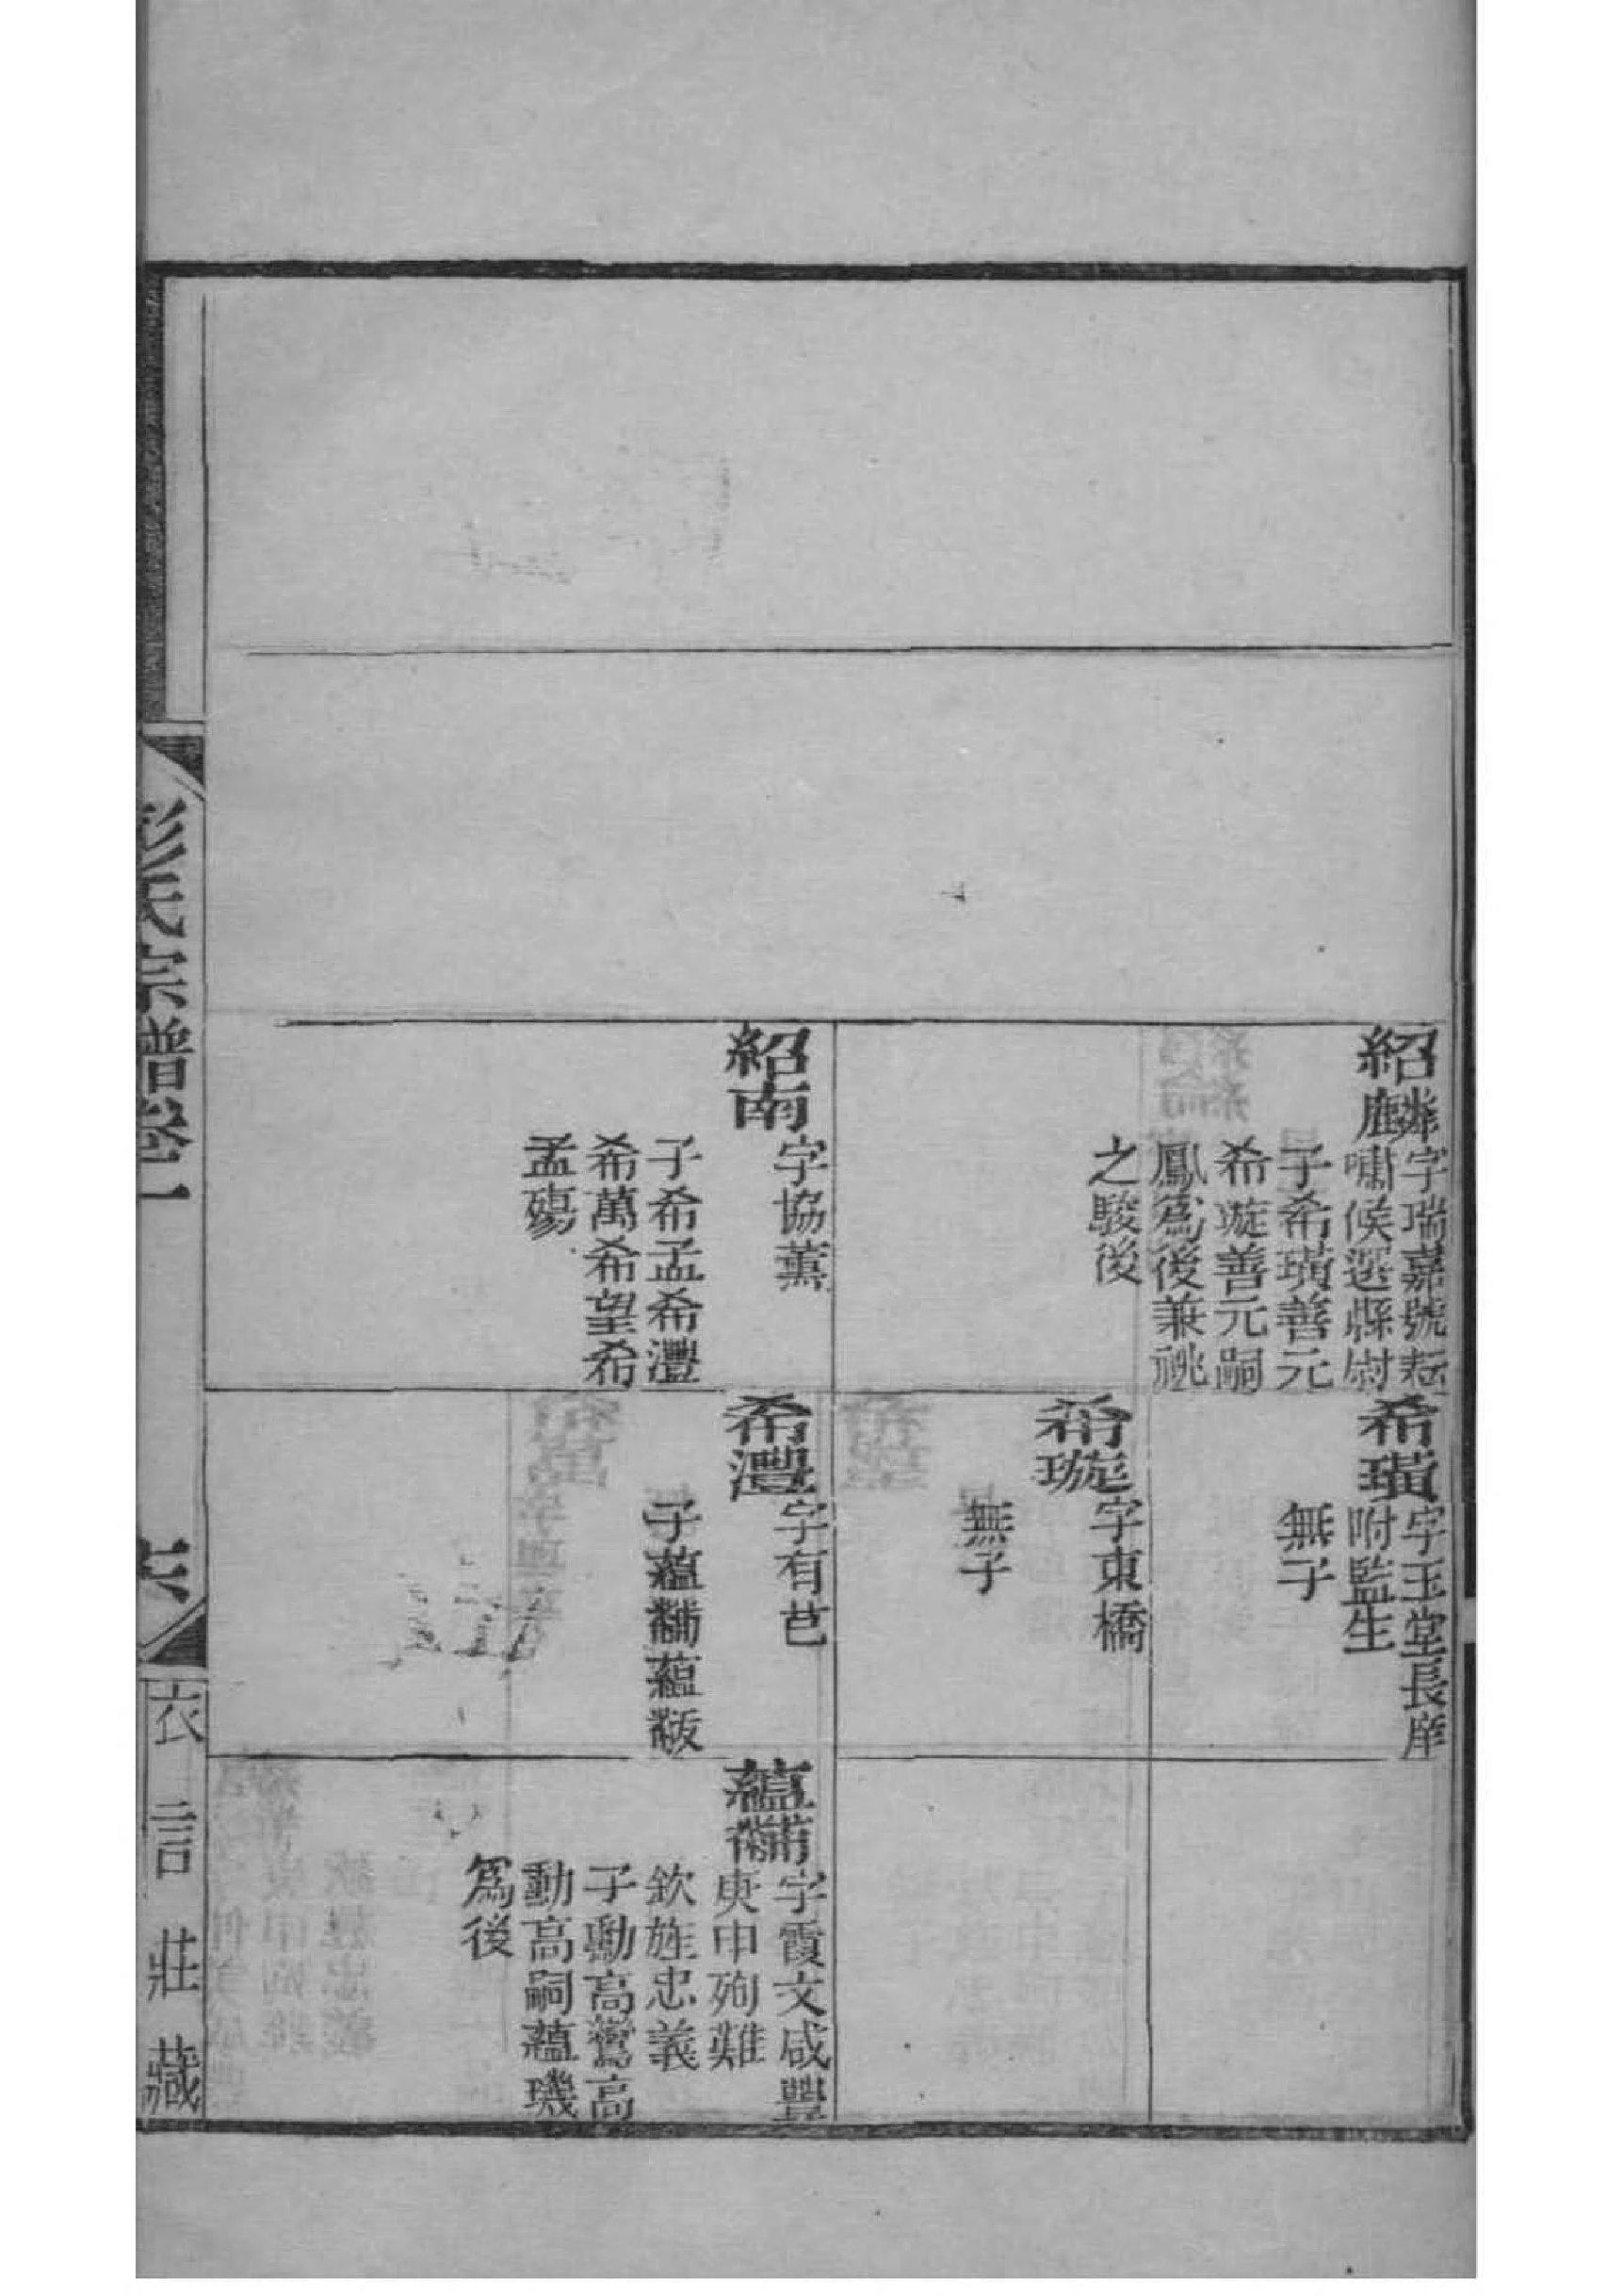 紹麟
字瑞嘉號耘
嘯候選縣尉
子希璜善元
希璇善元嗣
鳳爲後兼祧
之駿後
紹南
字協薰
子希孟希灃
希萬希望希
孟殤
希璜
字玉堂長庠
附監生
無子
希璇
字東橋
無子
希灃
字有芑
子蘊黼蘊黻
蘊黼
字霞文咸豐
庚申殉難
欽旌忠義
子勳高鶯高
動高嗣蘊璣
爲後
彭氏宗譜卷一
六
衣言莊藏